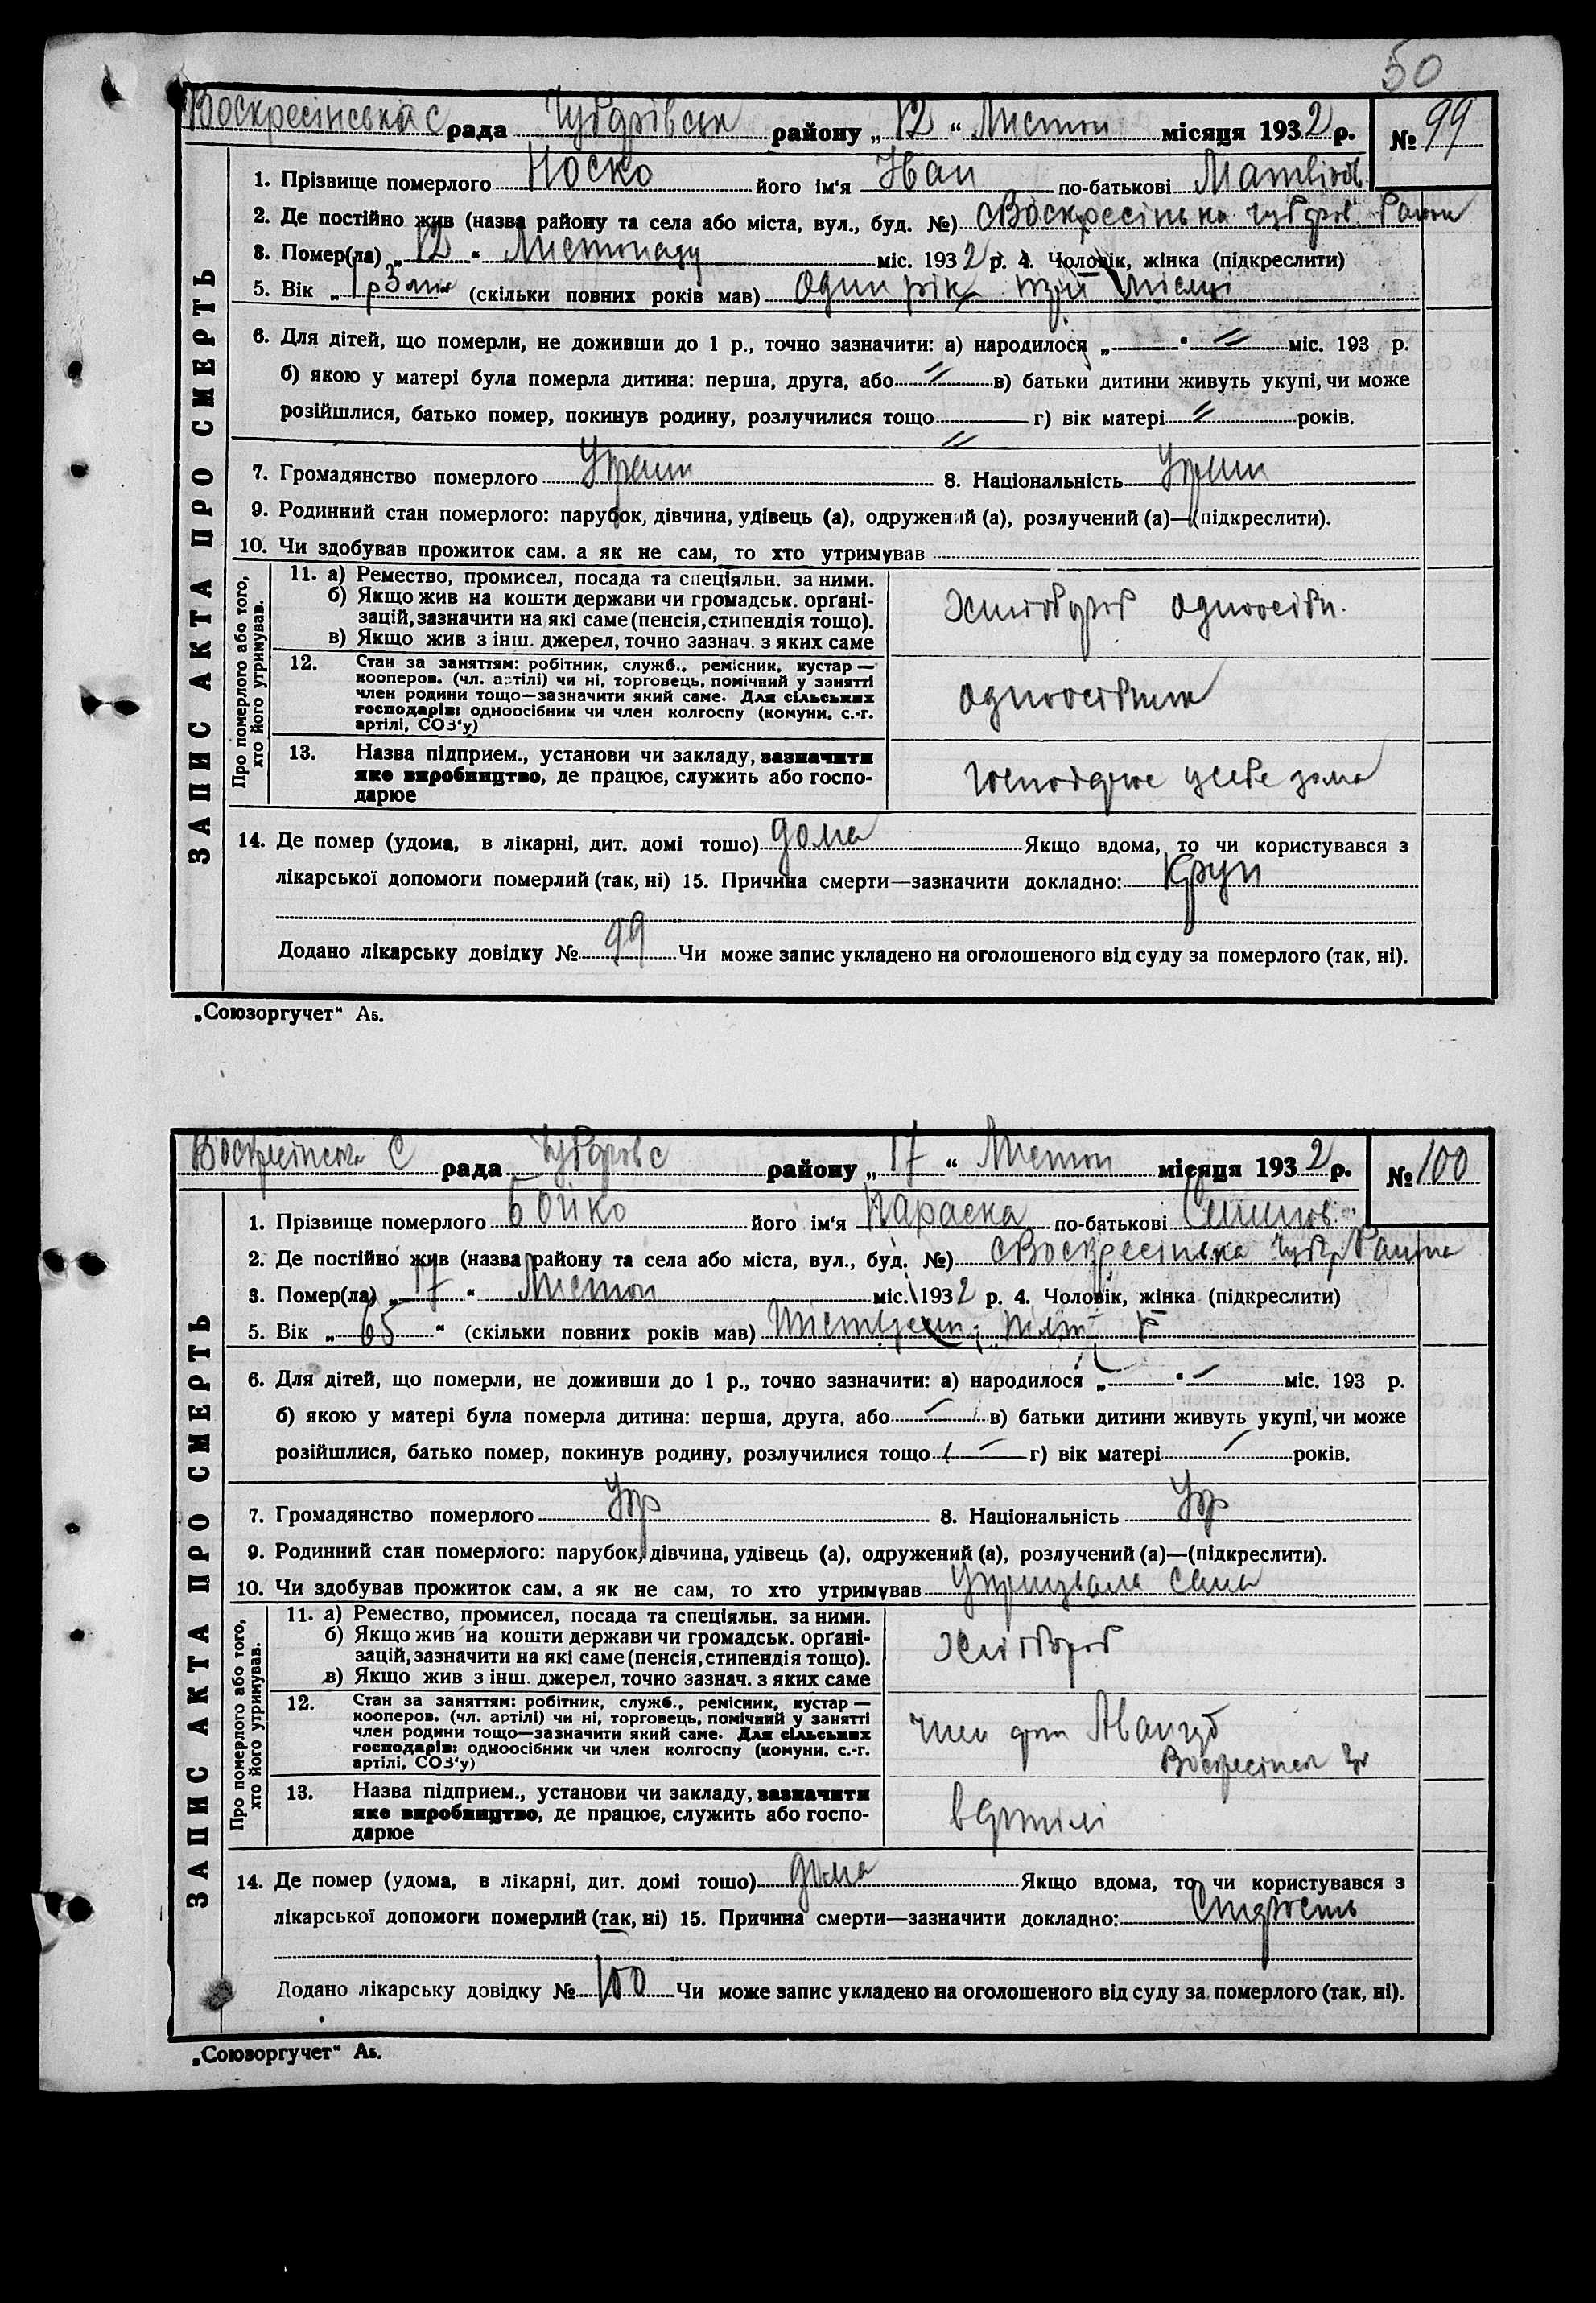 50
Воскресінська с рада Чубарівськ району „12“ Листоп місяця 1932 р. № 99
ЗАПИС АКТА ПРО СМЕРТЬ
1. Прізвище померлого Носко його ім'я Іван по-батькові Матвійов
2. Де постійно жив (назва району та села або міста, вул., буд. №) с Воскресінька Чубарів Району
3. Помер(ла) „12“ Листопаду міс. 1932 р. 4. Чоловік, жінка (підкреслити)
5. Вік „1 р 3 міс“ (скільки повних років мав) один рік три місяці
6. Для дітей, що померли, не доживши до 1 р., точно зазначити: а) народилося „—“ 〃 міс. 193 р.
б) якою у матері була померла дитина: перша, друга, або 〃 в) батьки дитини живуть укупі, чи може
розійшлися, батько помер, покинув родину, розлучилися тощо 〃 г) вік матері 〃 років.
7. Громадянство померлого Україн 8. Національність Україн
9. Родинний стан померлого: парубок, дівчина, удівець (а), одружений (а), розлучений (а)—(підкреслити).
10. Чи здобував прожиток сам, а як не сам, то хто утримував
Про померлого або того, хто його утримував.
11. а) Ремество, промисел, посада та спеціяльн. за ними.
б) Якщо жив на кошти держави чи громадськ. орґані-
зацій, зазначити на які саме (пенсія, стипендія тощо).
в) Якщо жив з інш. джерел, точно зазнач. з яких саме
Хлібороб одноосібн.
12. Стан за заняттям: робітник, служб., ремісник, кустар —
кооперов. (чл. артілі) чи ні, торговець, помічний у занятті
член родини тощо—зазначити який саме. Для сільських
господарів: одноосібник чи член колгоспу (комуни, с.-г.
артілі, СОЗ'у)
одноосібник
13. Назва підприєм., установи чи закладу, зазначити
яке виробництво, де працює, служить або госпо-
дарює
господарює у себе дома
14. Де помер (удома, в лікарні, дит. домі тошо) дома Якщо вдома, то чи користувався з
лікарської допомоги померлий (так, ні) 15. Причина смерти—зазначити докладно: Круп
Додано лікарську довідку № 99 Чи може запис укладено на оголошеного від суду за померлого (так, ні).
„Союзоргучет“ А5.
Воскресінська С рада Чубаровс району „17“ Листоп місяця 1932 р. № 100
ЗАПИС АКТА ПРО СМЕРТЬ
1. Прізвище померлого Бойко його ім'я Параска по-батькові
2. Де постійно жив (назва району та села або міста, вул., буд. №) с Воскресінька Чубар Району
3. Помер(ла) „17“ Листоп міс. 1932 р. 4. Чоловік, жінка (підкреслити)
5. Вік „65“ (скільки повних років мав) Шістдесят пять р
6. Для дітей, що померли, не доживши до 1 р., точно зазначити: а) народилося „—“ — міс. 193 р.
б) якою у матері була померла дитина: перша, друга, або — в) батьки дитини живуть укупі, чи може
розійшлися, батько помер, покинув родину, розлучилися тощо — г) вік матері — років.
7. Громадянство померлого Укр 8. Національність Укр
9. Родинний стан померлого: парубок, дівчина, удівець (а), одружений (а), розлучений (а)—(підкреслити).
10. Чи здобував прожиток сам, а як не сам, то хто утримував утримувала сама
Про померлого або того, хто його утримував.
11. а) Ремество, промисел, посада та спеціяльн. за ними.
б) Якщо жив на кошти держави чи громадськ. орґані-
зацій, зазначити на які саме (пенсія, стипендія тощо).
в) Якщо жив з інш. джерел, точно зазнач. з яких саме
Хлібороб
12. Стан за заняттям: робітник, служб., ремісник, кустар —
кооперов. (чл. артілі) чи ні, торговець, помічний у занятті
член родини тощо—зазначити який саме. Для сільських
господарів: одноосібник чи член колгоспу (комуни, с.-г.
артілі, СОЗ'у)
член арт Авангард
13. Назва підприєм., установи чи закладу, зазначити
яке виробництво, де працює, служить або госпо-
дарює
в артілі
14. Де помер (удома, в лікарні, дит. домі тошо) дома Якщо вдома, то чи користувався з
лікарської допомоги померлий (так, ні) 15. Причина смерти—зазначити докладно: Старость
Додано лікарську довідку № 100 Чи може запис укладено на оголошеного від суду за померлого (так, ні).
„Союзоргучет“ А5.